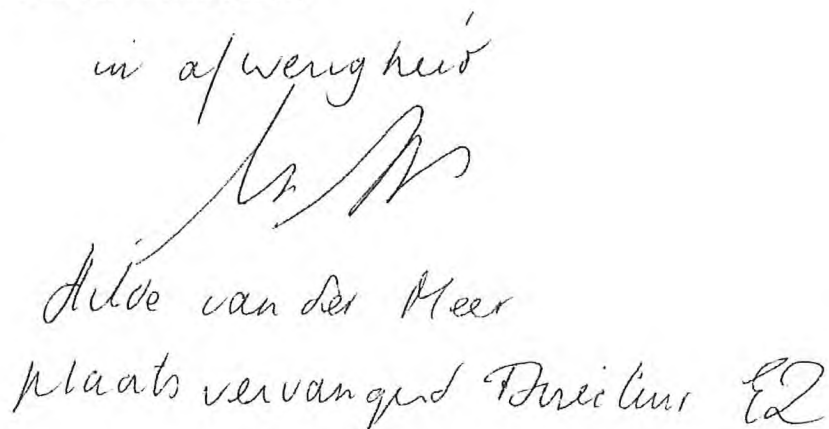 in afwezigheid
Hilde van der Meer
plaatsvervangend Directeur E2